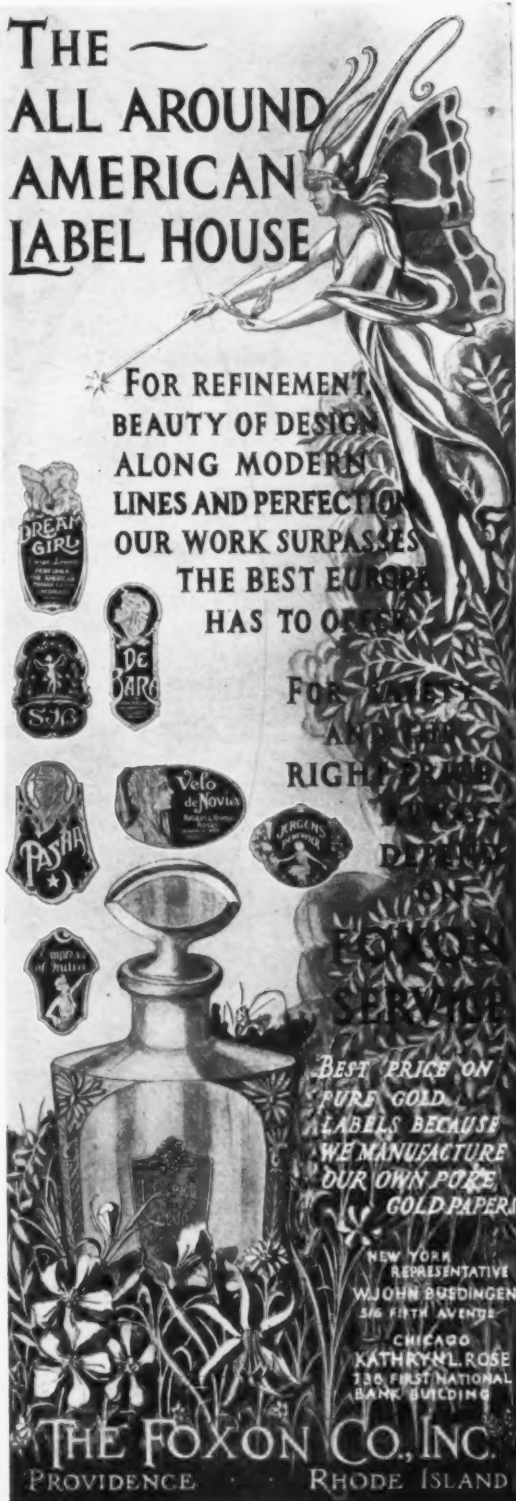 THE
ALL AROUND
AMERICAN
LABEL HOUSE
FOR REFINEMENT,
BEAUTY OF DESIGN
ALONG MODERN
LINES AND PERFECTION
OUR WORK SURPASSES
THE BEST EUROPE
HAS TO OFFER
DREAM
GIRL
DE
S·J·B
FOR
AND THE
RIGHT
DEPEND
ON
FOXON
SERVICE
Velo
de Novia
PASHA
JERGENS
Empress
of India
BEST PRICE ON
PURE GOLD
LABELS BECAUSE
WE MANUFACTURE
OUR OWN PURE
GOLD PAPERS
NEW YORK
REPRESENTATIVE
W. JOHN BUEDINGEN
516 FIFTH AVENUE
CHICAGO
KATHRYN L. ROSE
738 FIRST NATIONAL
BANK BUILDING
THE FOXON CO., INC.
PROVIDENCE · · RHODE ISLAND